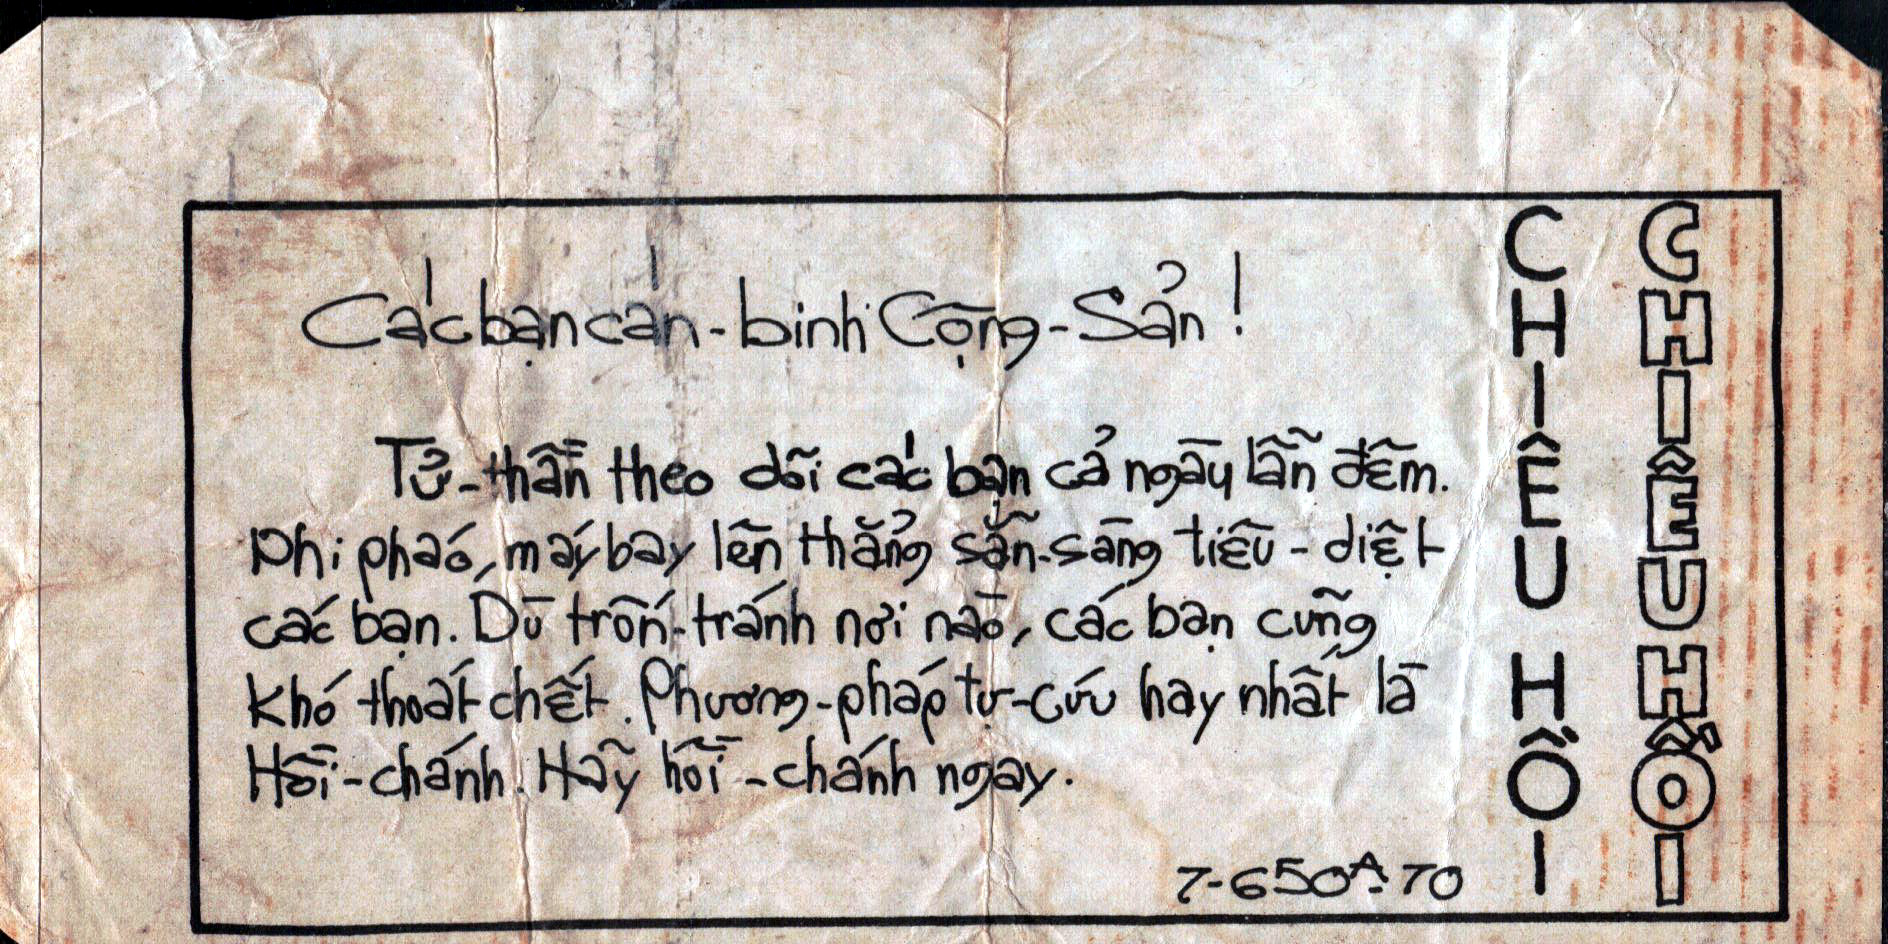 Các bạn cán-binh Cộng-Sản!
Tử-thần theo dõi các bạn cả ngày lẫn đêm.
Phi pháo, máy bay lên thẳng sẵn-sàng tiêu-diệt
các bạn. Dù trốn-tránh nơi nào, các bạn cũng
khó thoát chết. Phương-pháp tự-cứu hay nhất là
Hồi-chánh. Hãy hồi-chánh ngay.
7-650A-70
CHIÊU HỒI
CHIÊU HỒI